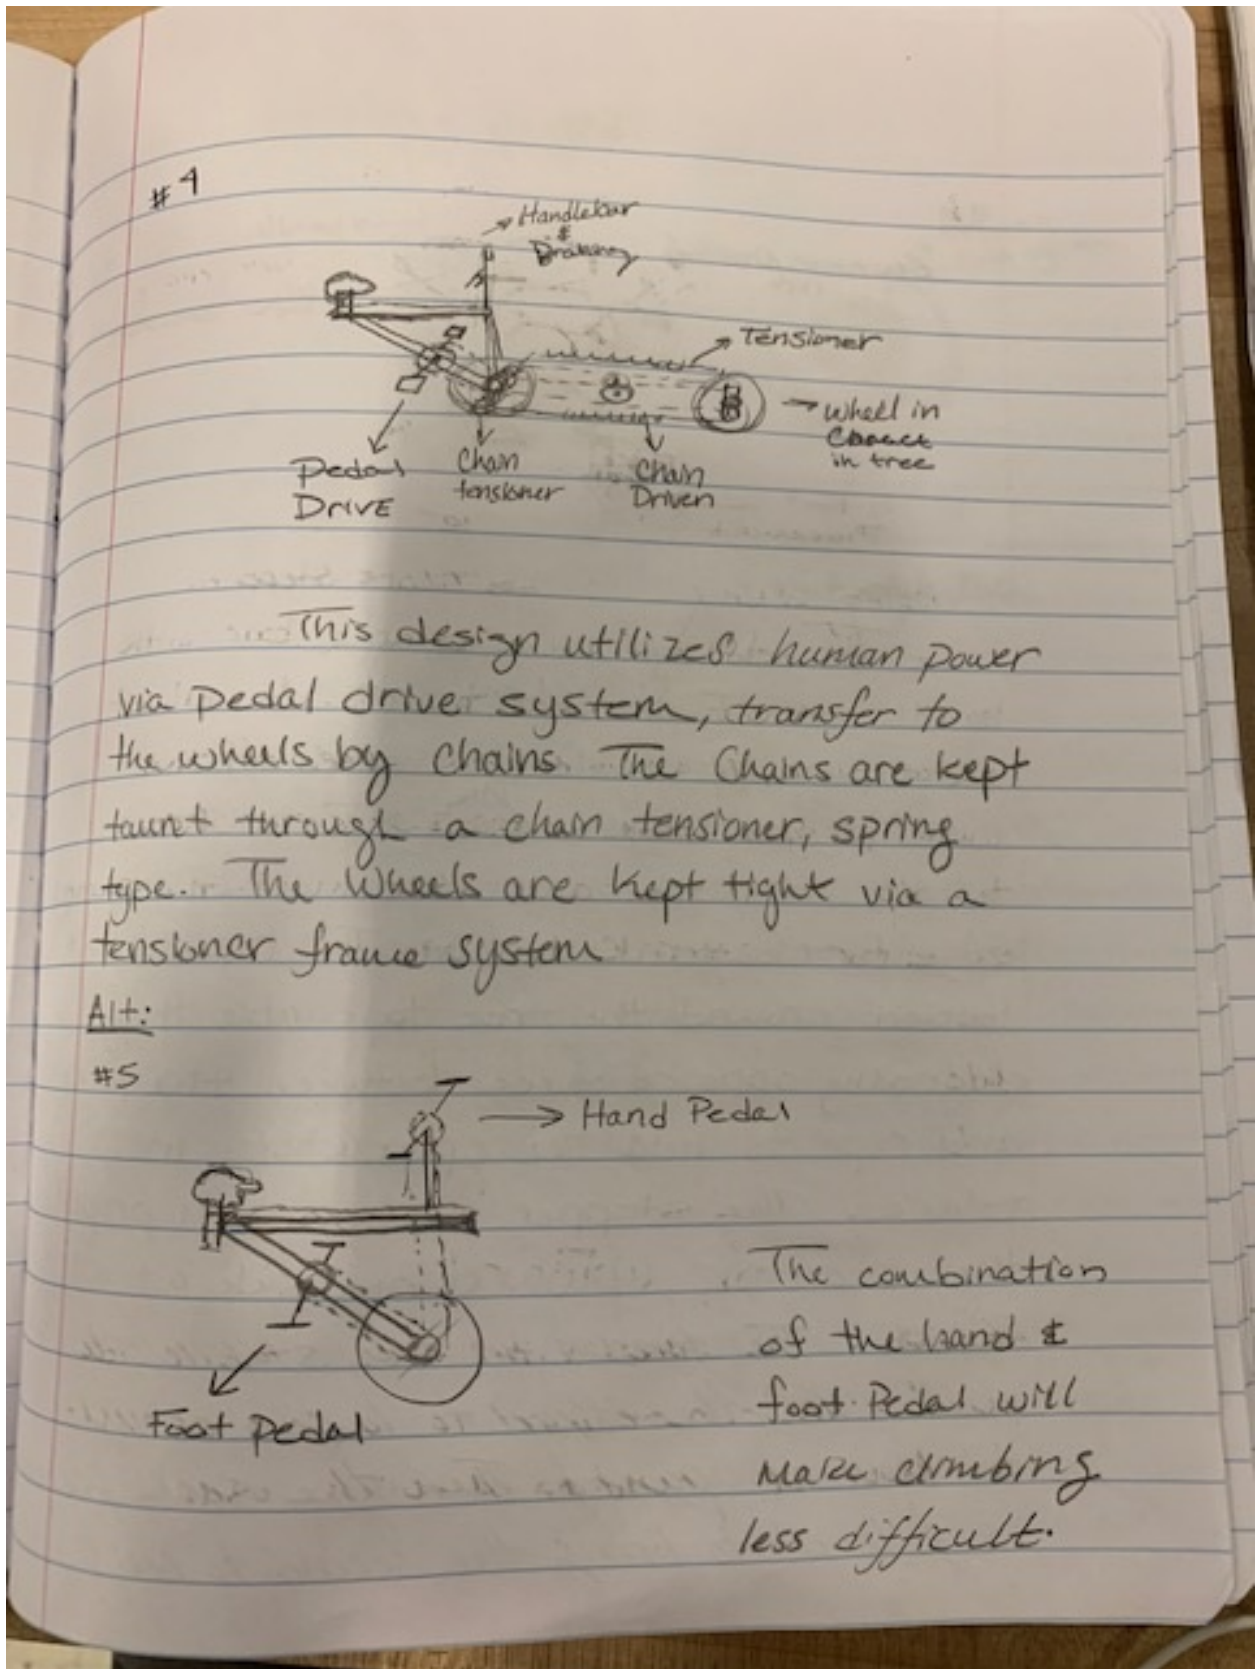 #4
Handlebar
&
Braking
Tensioner
wheel in
in tree
Pedal
DRIVE
Chain
tensioner
Chain
Driven
This design utilizes human power
via pedal drive system, transfer to
the wheels by chains. The Chains are kept
taunt through a chain tensioner, spring
type. The wheels are kept tight via a
tensioner frame system
Alt:
#5
Hand Pedal
Foot pedal
The combination
of the hand &
foot Pedal will
make climbing
less difficult.